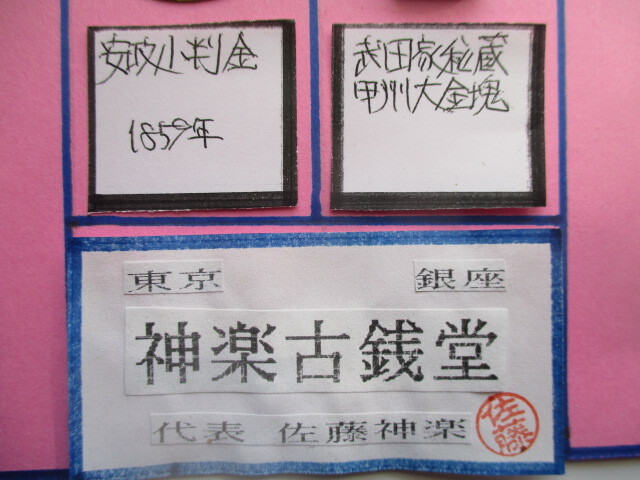 安政小判金
1859年
武田家秘蔵
甲州大金塊
東京 銀座
神楽古銭堂
代表 佐藤神楽
佐藤